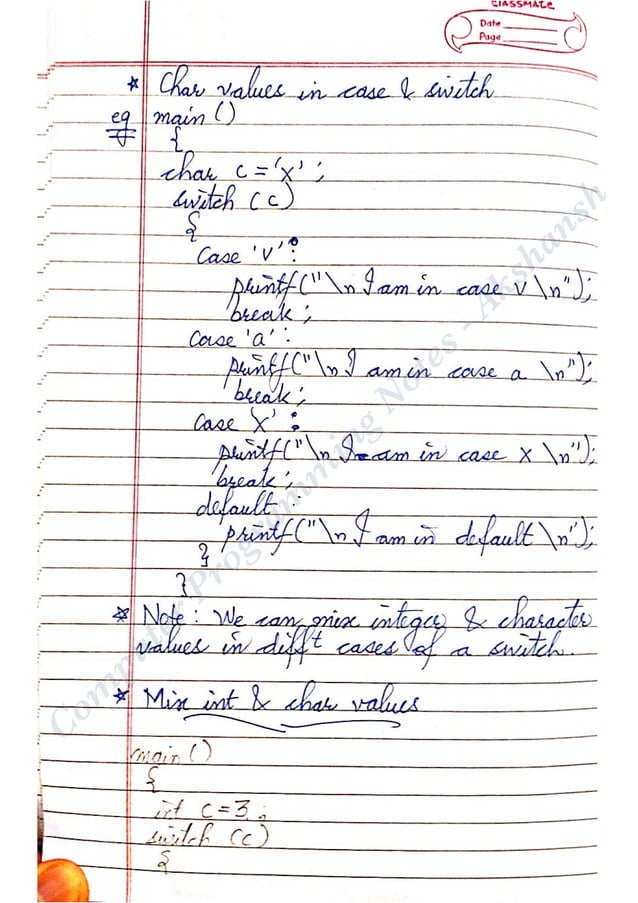 CLASSMATE
Date
Page
* Char values in case & switch
eg main()
{
char c = 'x' ;
switch (c)
{
case 'v' :
printf("\n I am in case v \n");
break ;
case 'a' :
printf("\n I am in case a \n");
break ;
case 'x' :
printf("\n I am in case x \n");
break ;
default :
printf("\n I am in default \n");
}
}
* Note : We can mix integer & character
values in difft cases of a switch.
* Mix int & char values
main()
{
int c = 3 ;
switch (c)
{
Computer Programming Notes - Akshansh